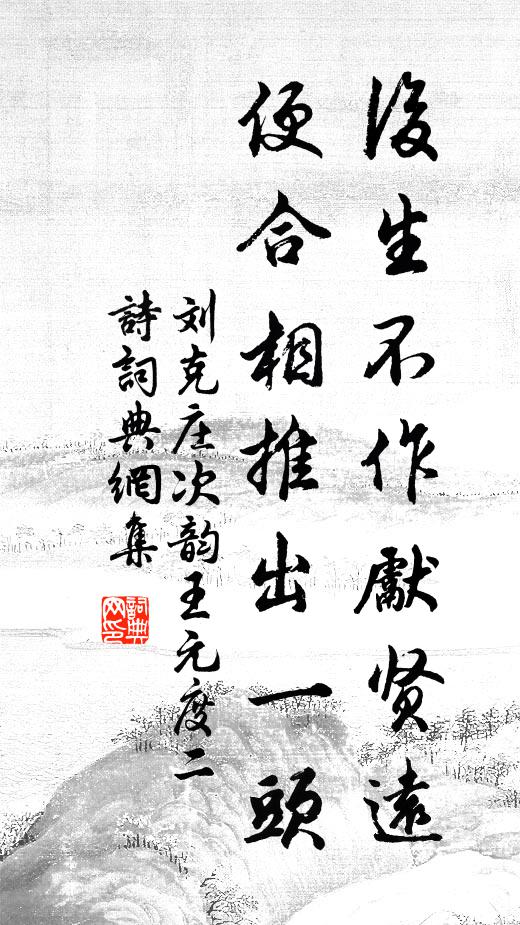 後生不作獻贤遠
便合相推出一頭
刘克庄次韵王元度二
詩詞典網集
詞典
网印